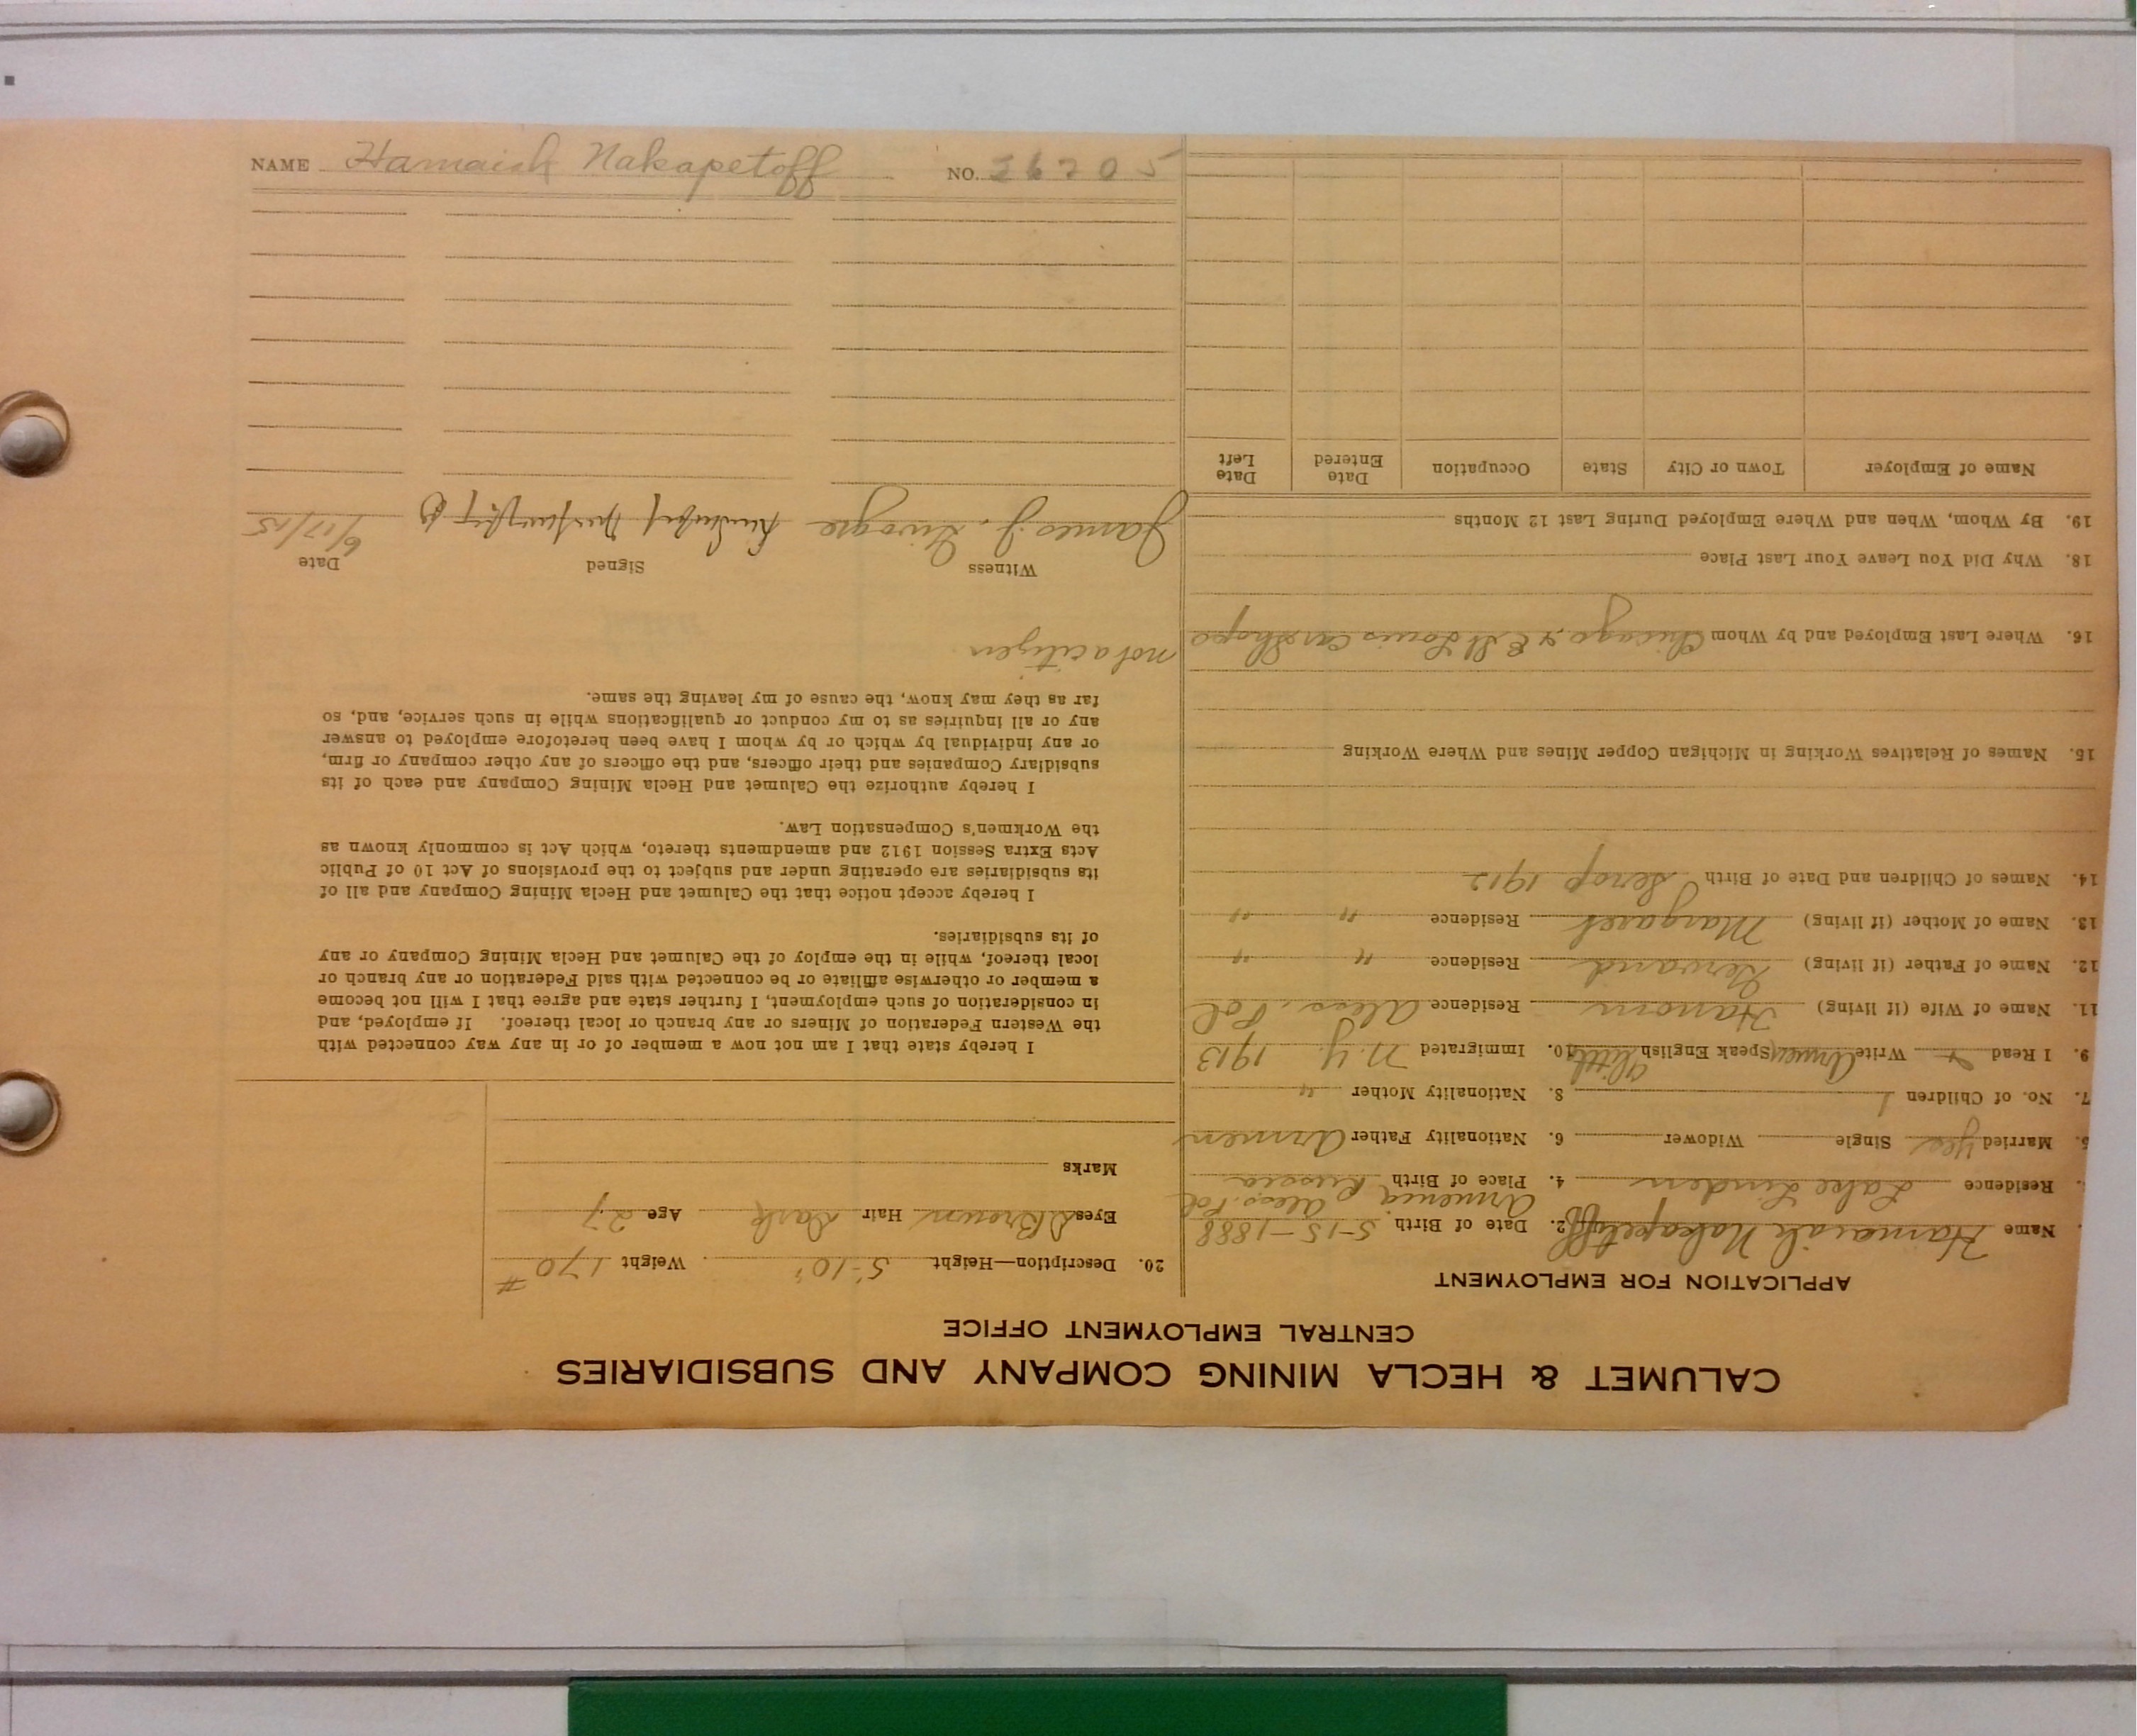 NAME Hamaiak Nakapetoff NO. 26205
CALUMET & HECLA MINING COMPANY AND SUBSIDIARIES
CENTRAL EMPLOYMENT OFFICE
APPLICATION FOR EMPLOYMENT
Name Hamaiak Nakapetoff 2. Date of Birth 5-15-1888
Armenia Alex. Pol
Residence Lake Linden 4. Place of Birth Russia
Married Yes Single Widower 6. Nationality Father Armen
7. No. of Children 1 8. Nationality Mother "
9. I Read Write Armen Speak English little 10. Immigrated N.Y. 1913
11. Name of Wife (if living) Hanom Residence Alex. Pol
12. Name of Father (if living) Residence " "
13. Name of Mother (if living) Margaret Residence " "
14. Names of Children and Date of Birth Serop 1912
15. Names of Relatives Working in Michigan Copper Mines and Where Working
16. Where Last Employed and by Whom Chicago & E St Louis Car Shops
18. Why Did You Leave Your Last Place
19. By Whom, When and Where Employed During Last 12 Months
Name of Employer Town or City State Occupation Date Entered Date Left
20. Description—Height 5'-10" Weight 170 #
Eyes D Brown Hair Dark Age 27
Marks
I hereby state that I am not now a member of or in any way connected with
the Western Federation of Miners or any branch or local thereof. If employed, and
in consideration of such employment, I further state and agree that I will not become
a member or otherwise affiliate or be connected with said Federation or any branch or
local thereof, while in the employ of the Calumet and Hecla Mining Company or any
of its subsidiaries.
I hereby accept notice that the Calumet and Hecla Mining Company and all of
its subsidiaries are operating under and subject to the provisions of Act 10 of Public
Acts Extra Session 1912 and amendments thereto, which Act is commonly known as
the Workmen's Compensation Law.
I hereby authorize the Calumet and Hecla Mining Company and each of its
subsidiary Companies and their officers, and the officers of any other company or firm,
or any individual by which or by whom I have been heretofore employed to answer
any or all inquiries as to my conduct or qualifications while in such service, and, so
far as they may know, the cause of my leaving the same.
not a citizen
Witness Signed Date
James J. 6/17/15